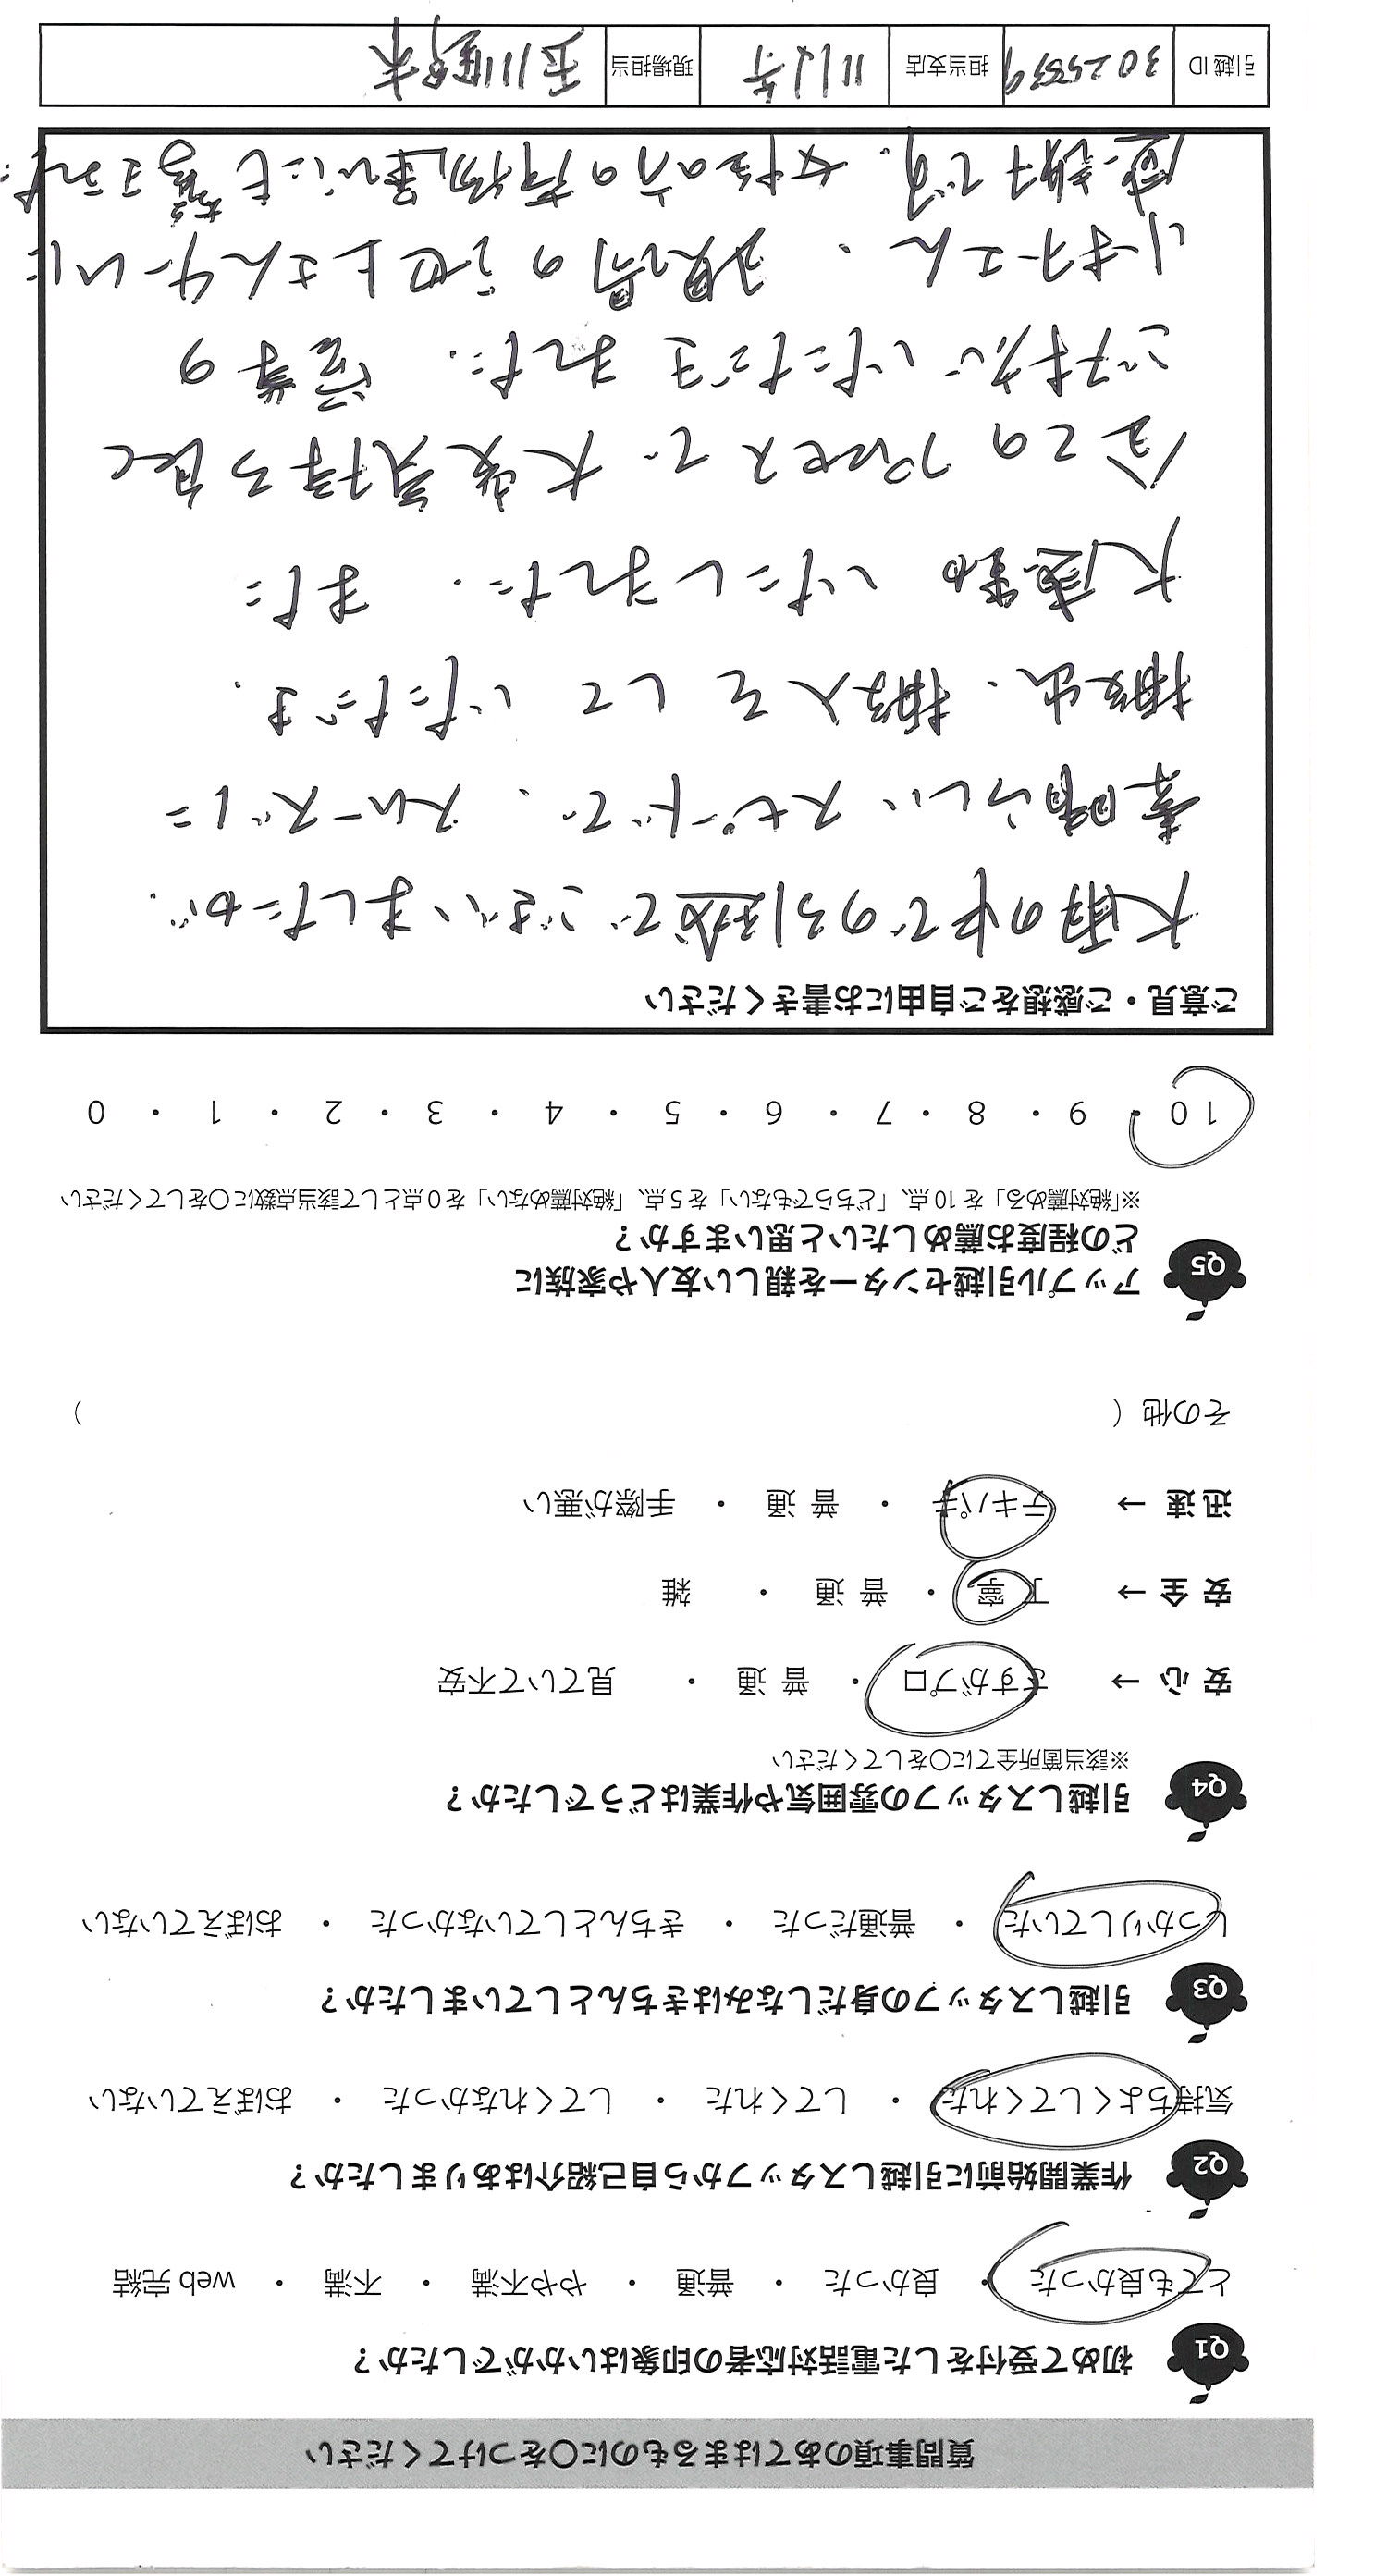 質問事項のあてはまるものに〇をつけてください
Q1 初めて受付をした電話対応者の印象はいかがでしたか？
とても良かった ・ 良かった ・ 普通 ・ やや不満 ・ 不満 ・ web 完結
Q2 作業開始前に引越しスタッフから自己紹介はありましたか？
気持ちよくしてくれた ・ してくれた ・ してくれなかった ・ おぼえていない
Q3 引越しスタッフの身だしなみはきちんとしていましたか？
しっかりしていた ・ 普通だった ・ きちんとしていなかった ・ おぼえていない
Q4 引越しスタッフの雰囲気や作業はどうでしたか？
※該当箇所全てに〇をしてください
安 心 → さすがプロ ・ 普 通 ・ 見ていて不安
安 全 → 丁 寧 ・ 普 通 ・ 雑
迅 速 → テキパキ ・ 普 通 ・ 手際が悪い
その他（ ）
Q5 アップル引越センターを親しい友人や家族に
どの程度お薦めしたいと思いますか？
※「絶対薦める」を 10 点、「どちらでもない」を 5 点、「絶対薦めない」を 0 点として該当点数に〇をしてください
10 ・ 9 ・ 8 ・ 7 ・ 6 ・ 5 ・ 4 ・ 3 ・ 2 ・ 1 ・ 0
ご意見・ご感想をご自由にお書きください
大雨の中での引越でございましたが、
素晴らしいスピードで、スムーズに
搬出、搬入をしていただき、
大感動いたしました。また
全てのプロセスで大変気持ち良く
ご対応いただきました。
リーダーさん、
感謝です。女性の方の荷物運びにも
引越 ID 担当支店 現場担当